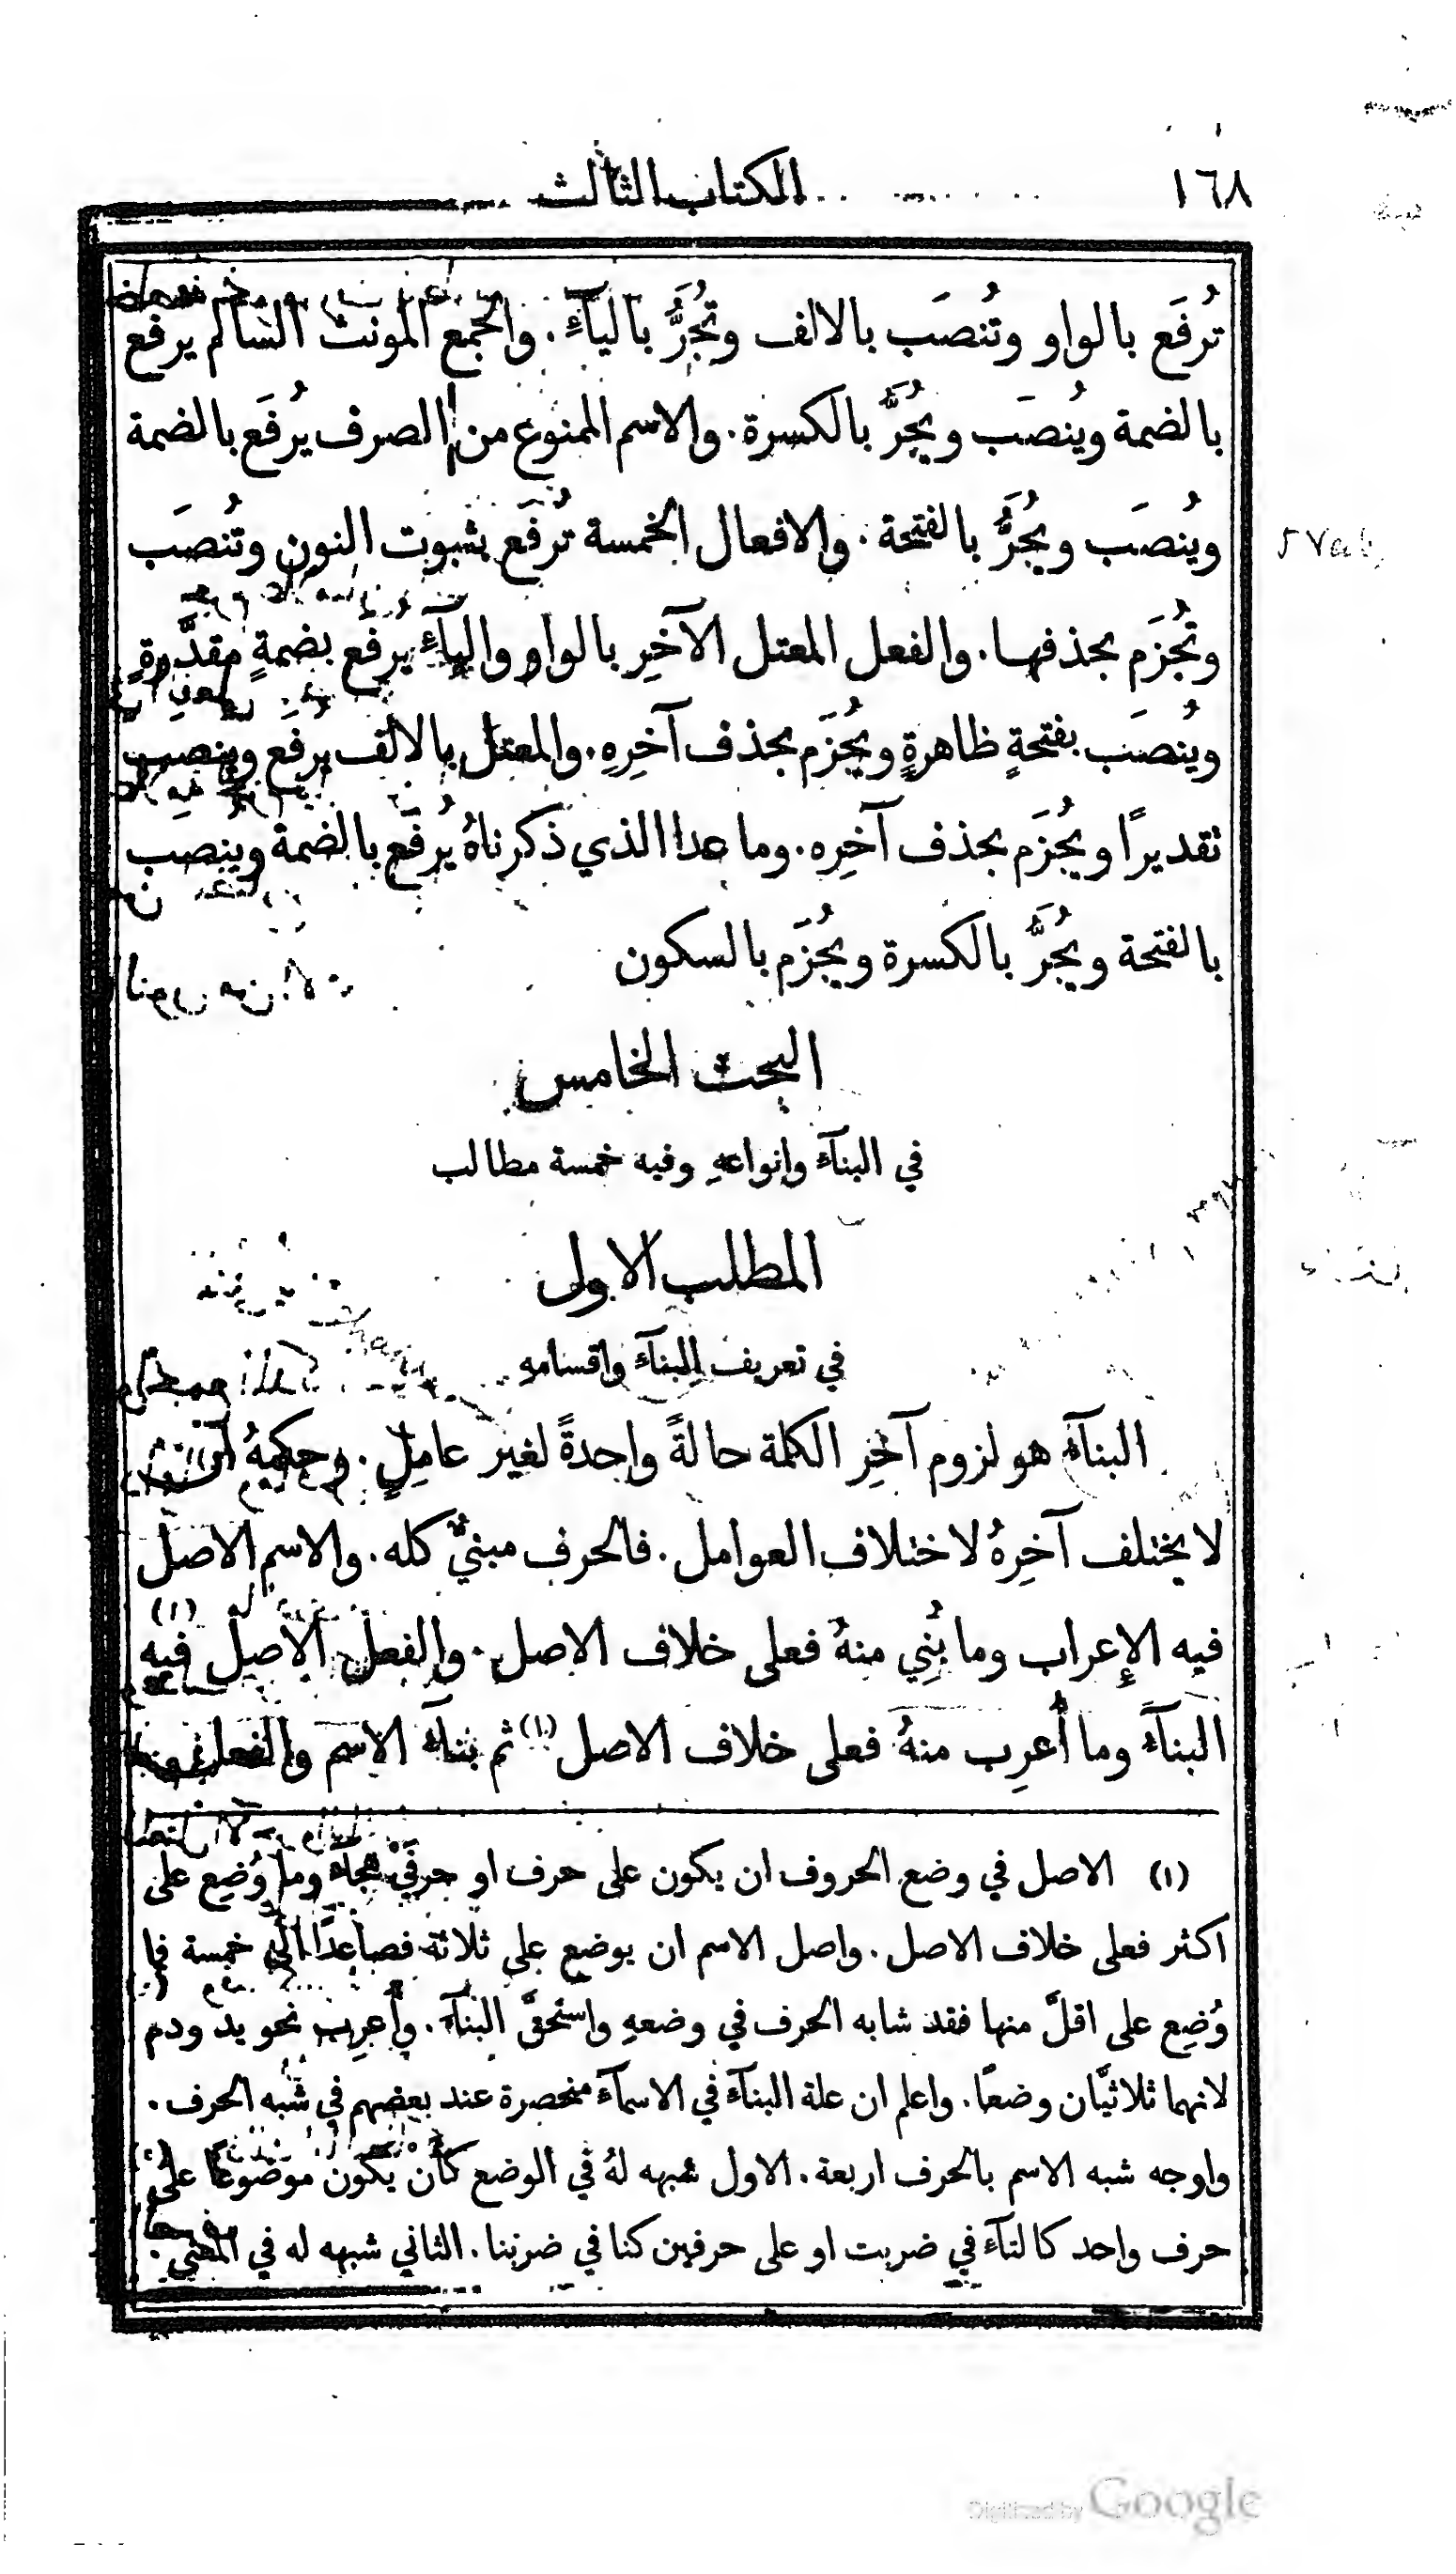 ١٦٨
الكتاب الثالث
تُرفَع بالواو وتُنصَب بالالف وتُجَرُّ بالياۤءِ. والجمع المونث السالم يرفع
بالضمة ويُنصَب ويُجَرُّ بالكسرة. والاسم الممنوع من الصرف يُرفَع بالضمة
ويُنصَب ويُجَرُّ بالفتحة. والافعال الخمسة تُرفَع بثبوت النون وتُنصَب
وتُجزَم بحذفها. والفعل المعتل الآخِر بالواو والياۤءِ يرفع بضمةٍ مقدَّرةٍ
ويُنصَب بفتحةٍ ظاهرةٍ ويُجزَم بحذف آخِرِهِ. والمعتل بالالف يُرفَع وينصب
تقديرًا ويُجزَم بحذف آخِره. وما عدا الذي ذكرناهُ يُرفَع بالضمة وينصب
بالفتحة ويُجَرُّ بالكسرة ويُجزَم بالسكون
البحث الخامس
في البناۤءِ وانواعهِ وفيه خمسة مطالب
المطلب الاول
في تعريف البناۤءِ واقسامهِ
البناۤءُ هو لزوم آخِر الكلمة حالةً واحدةً لغير عامِلٍ. وحكمهُ ان
لا يختلف آخِرهُ لاختلاف العوامل. فالحرف مبنيٌّ كله. والاسم الاصل
فيه الإعراب وما بُنِي منهُ فعلى خلاف الاصل (١). والفعل الاصل فيه
البناۤءُ وما أُعرِب منهُ فعلى خلاف الاصل (١) ثم بناۤء الاسم والفعل
(١) الاصل في وضع الحروف ان يكون على حرف او حرفَيْ هجاۤءٍ وما وُضِع على
اكثر فعلى خلاف الاصل. واصل الاسم ان يوضع على ثلاثة فصاعدًا الى خمسة فما
وُضِع على اقلَّ منها فقد شابه الحرف في وضعهِ واستحقَّ البناۤءَ. وأُعرِب نحو يد ودم
لانهما ثلاثيَّان وضعًا. واعلم ان علة البناۤءِ في الاسماۤءِ منحصرة عند بعضهم في شَبه الحرف.
واوجه شبه الاسم بالحرف اربعة. الاول شبهه لهُ في الوضع كأَن يكون موضوعًا على
حرف واحد كالتاۤءِ في ضربت او على حرفين كنا في ضربنا. الثاني شبهه له في المعنى.
Digitized by Google